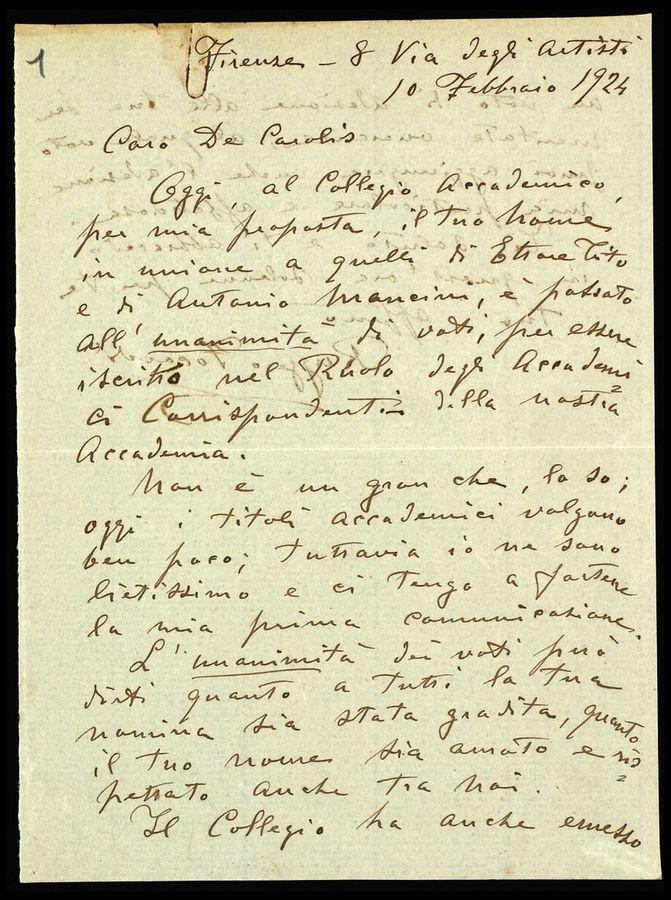 1
Firenze - 8 Via degli Artisti
10 Febbraio 1924
Caro De Carolis
Oggi, al Collegio Accademico,
per mia proposta, il tuo nome
in unione a quelli di Ettore Tito
e di Antonio Mancini, è passato
all'unanimità di voti, per essere
iscritto nel Ruolo degli Accademi=
ci Corrispondenti della nostra
Accademia.
Non è un gran che, lo so;
oggi i titoli accademici valgono
ben poco; tuttavia io ne sono
lietissimo e ci tengo a fartene
la mia prima comunicazione.
L'unanimità dei voti può
dirti quanto a tutti la tua
nomina sia stata gradita, quanto
il tuo nome sia amato e ris=
pettato anche tra noi.
Il Collegio ha anche emesso